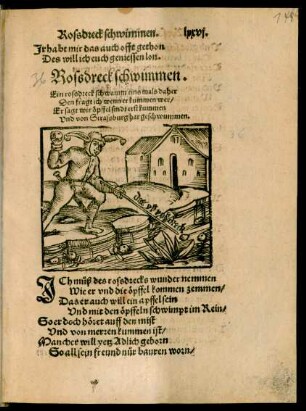 Roßdreck schwimmen. lxxvj.
Ir habt mir das auch offt gethon
Des will ich euch geniessen lon.
Roßdreck schwimmen.
Ein roßdreck schwam eins mals daher
Den fragt ich wenn er kummen wer/
Er sagt wir öpffel sindt erst kummen
Und von Straßburg har geschwummen.
ICh müß des roßdrecks wunder nemmen
Wie er vnd die öpffel kommen zemmen/
Das er auch will ein apffel sein
Vnd mit den öpffeln schwimpt im Rein/
So er doch höret auff den mist
Vnd von merren kummen ist/
Mancher will yetz Adlich geborn
So all sein freund nür bauren worn/